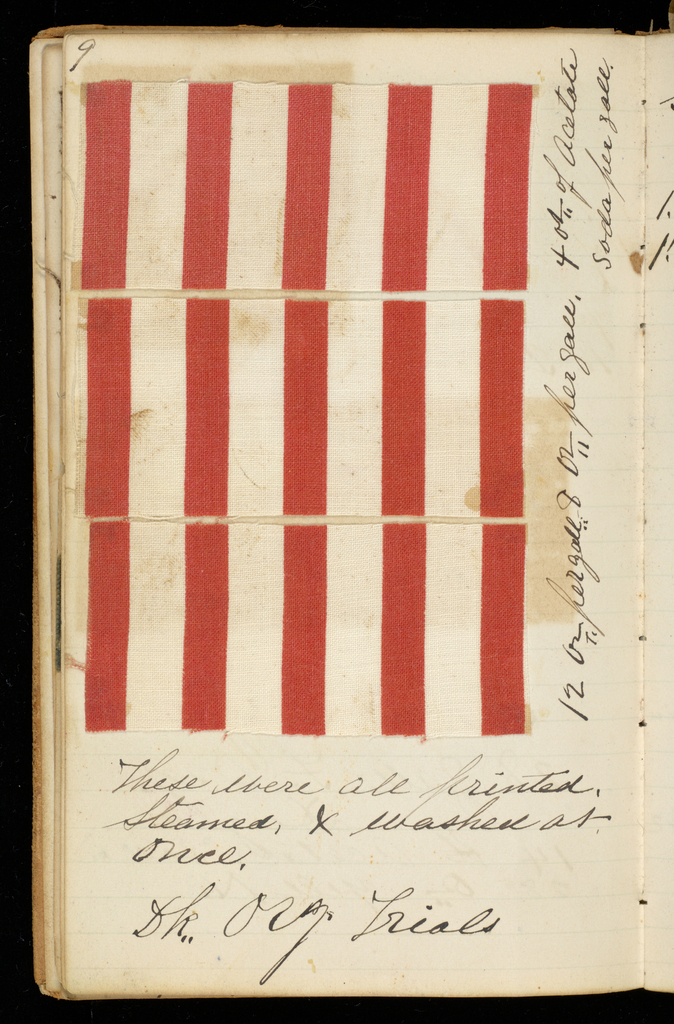 9
12 oz per gall. 8 oz per gall. 4 oz. of Acetate
Soda per gall.
These were all printed,
Steamed, & washed at
once.
Dk. Org. Trials